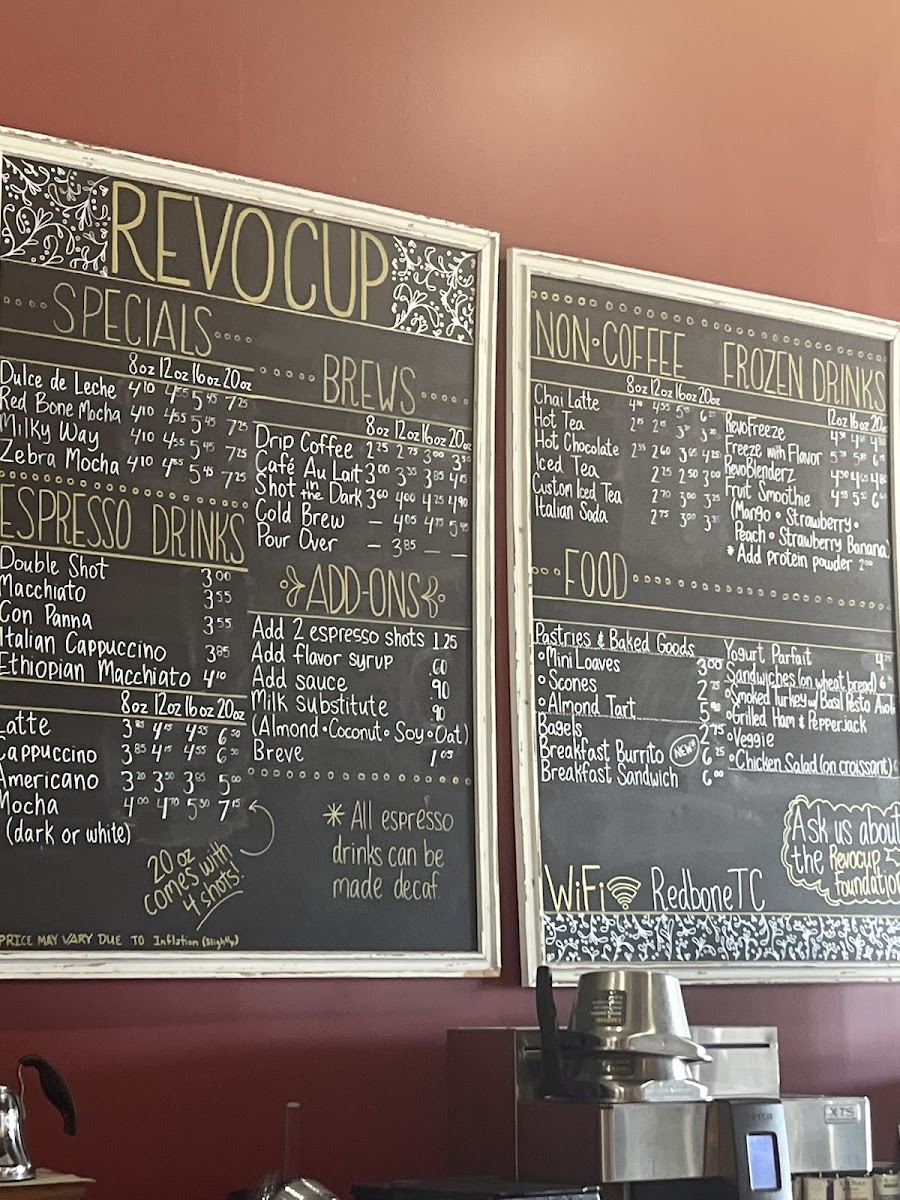 REVOCUP
SPECIALS
8oz 12oz 16oz 20oz
Dulce de Leche 4.10 4.55 5.45 7.25
Red Bone Mocha 4.10 4.55 5.45 7.25
Milky Way 4.10 4.55 5.45 7.25
Zebra Mocha 4.10 4.55 5.45 7.25
ESPRESSO DRINKS
Double Shot 3.00
Macchiato 3.55
Con Panna 3.55
Italian Cappuccino 3.85
Ethiopian Macchiato 4.10
8oz 12oz 16oz 20oz
Latte 3.85 4.15 4.55 6.50
Cappuccino 3.85 4.15 4.55 6.50
Americano 3.20 3.50 3.95 5.00
Mocha 4.00 4.70 5.30 7.15
(dark or white)
20oz
comes with
4 shots!
PRICE MAY VARY DUE TO Inflation (Slightly)
BREWS
8oz 12oz 16oz 20oz
Drip Coffee 2.25 2.75 3.00 3.50
Café Au Lait 3.00 3.35 3.85 4.15
Shot in the Dark 3.60 4.00 4.25 4.90
Cold Brew – 4.05 4.75 5.95
Pour Over – 3.85 – –
ADD-ONS
Add 2 espresso shots 1.25
Add flavor syrup 60
Add sauce 90
Milk substitute 90
(Almond • Coconut • Soy • Oat)
Breve 1.05
* All espresso
drinks can be
made decaf.
NON•COFFEE
8oz 12oz 16oz 20oz
Chai Latte 4.55
Hot Tea
Hot Chocolate 2.60 4.25
Iced Tea 2.25 2.50 3.00
Custom Iced Tea 2.70 3.00
Italian Soda 2.75 3.00
FROZEN DRINKS
12oz 16oz 20oz
RevoFreeze
Freeze with Flavor
RevoBlenderz
Fruit Smoothie
(Mango • Strawberry •
Peach • Strawberry Banana)
* Add protein powder 2.00
FOOD
Pastries & Baked Goods
• Mini Loaves 3.00
• Scones 2.75
• Almond Tart 5.90
Bagels 2.75
Breakfast Burrito NEW! 6.25
Breakfast Sandwich 6.00
Yogurt Parfait
Sandwiches (on wheat bread)
• Smoked Turkey w/ Basil Pesto Aioli
• Grilled Ham & Pepperjack
• Veggie
• Chicken Salad (on croissant)
Ask us about
the Revocup
Foundation
WiFi RedboneTC
XTS